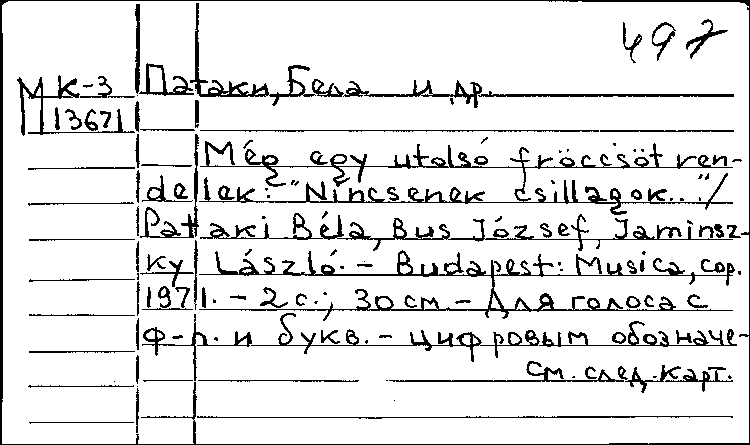 497
М К-3 Патаки, Бела и др.
13671
Még egy utolsó fröccsöt ren-
delek: "Nincsenek csillagok..."/
Pataki Béla, Bus József, Jaminsz-
ky László. - Budapest: Musica, cop.
1971. - 2 с.; 30 см. - Для голоса с
ф-п. и букв. - цифровым обозначе-
См. след. карт.